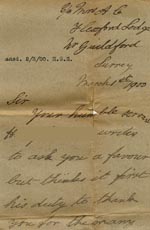 Co Mrs A C
Lodge
Nr Guildford
Surrey
ansd. 2/3/00. S.S.S.
March 1900
Sir
Your humble servant
writes
to ask you a favour
but thinks it first
his duty to thank
you for the many